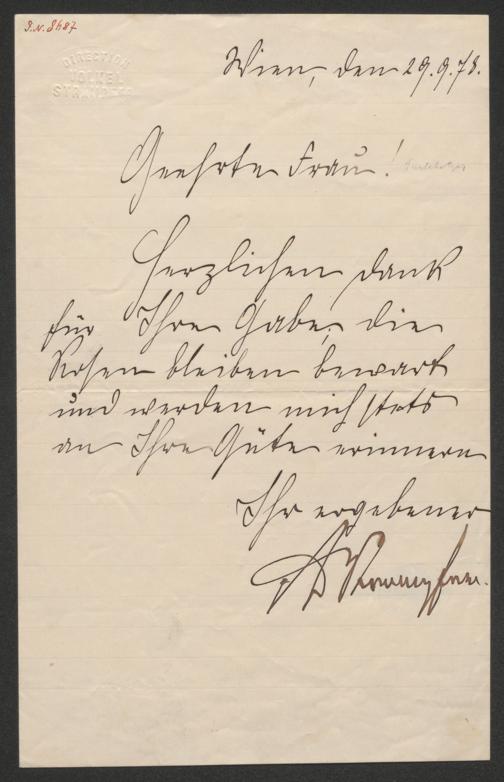 I.N. 8487
DIRECTION
Wien, den 29.9.78.
Geehrte Frau!
Herzlichen Dank
für Ihre Gabe, die
Rosen bleiben bewart
und werden mich stets
an Ihre Güte erinnern
Ihr ergebener